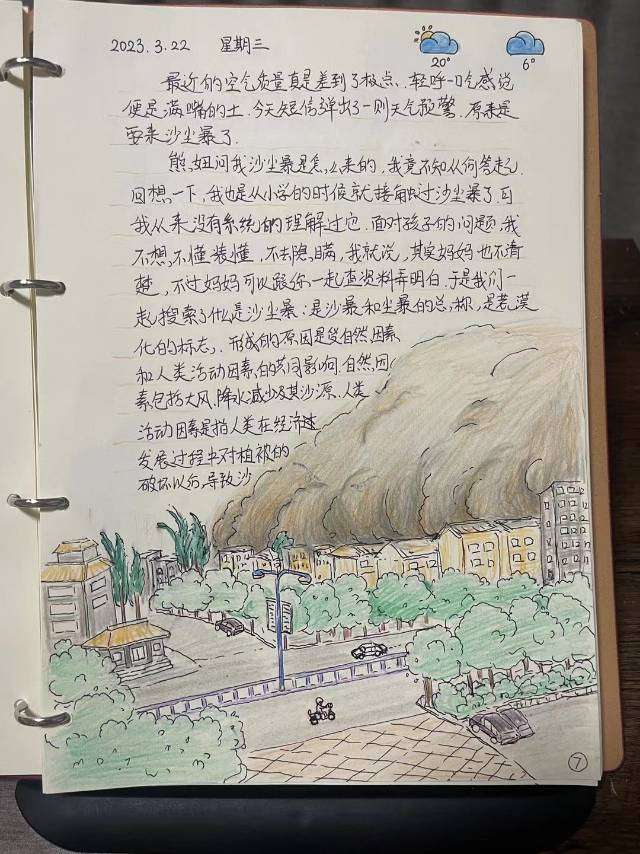 2023.3.22 星期三
20° 6°
最近的空气质量真是差到了极点、轻呼一口气感觉
便是满嘴的土.今天短信弹出了一则天气预警.原来是
要来沙尘暴了.
熊妞问我沙尘暴是怎么来的,我竟不知从何答起.
回想一下,我也是从小学的时候就接触过沙尘暴了.可
我从来没有系统的理解过它.面对孩子的问题,我
不想不懂装懂,不去隐瞒,我就说,其实妈妈也不清
楚,不过妈妈可以跟你一起查资料弄明白.于是我们一
起搜索了什么是沙尘暴:是沙暴和尘暴的总称,是荒漠
化的标志,形成的原因是受自然因素
和人类活动因素的共同影响.自然因
素包括大风、降水减少及其沙源.人类
活动因素是指人类在经济
发展过程中对植被的
破坏以后,导致沙
7